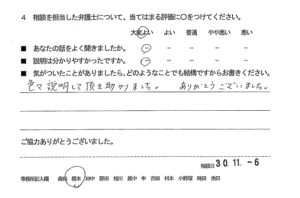 4 相談を担当した弁護士について、当てはまる評価に○をつけてください。
大変よい よい 普通 やや悪い 悪い
■ あなたの話をよく聞きましたか。
■ 説明は分かりやすかったですか。
■ 気がついたことがありましたら、どのようなことでも結構ですからお書きください。
色々説明して頂き助かりました。 ありがとうございました。
ご協力ありがとうございました。
相談日 30.11.-6
事務所記入欄 森田 榎本 田中 野田 相川 黄中 申 吉田 村本 小野塚 時田 池田